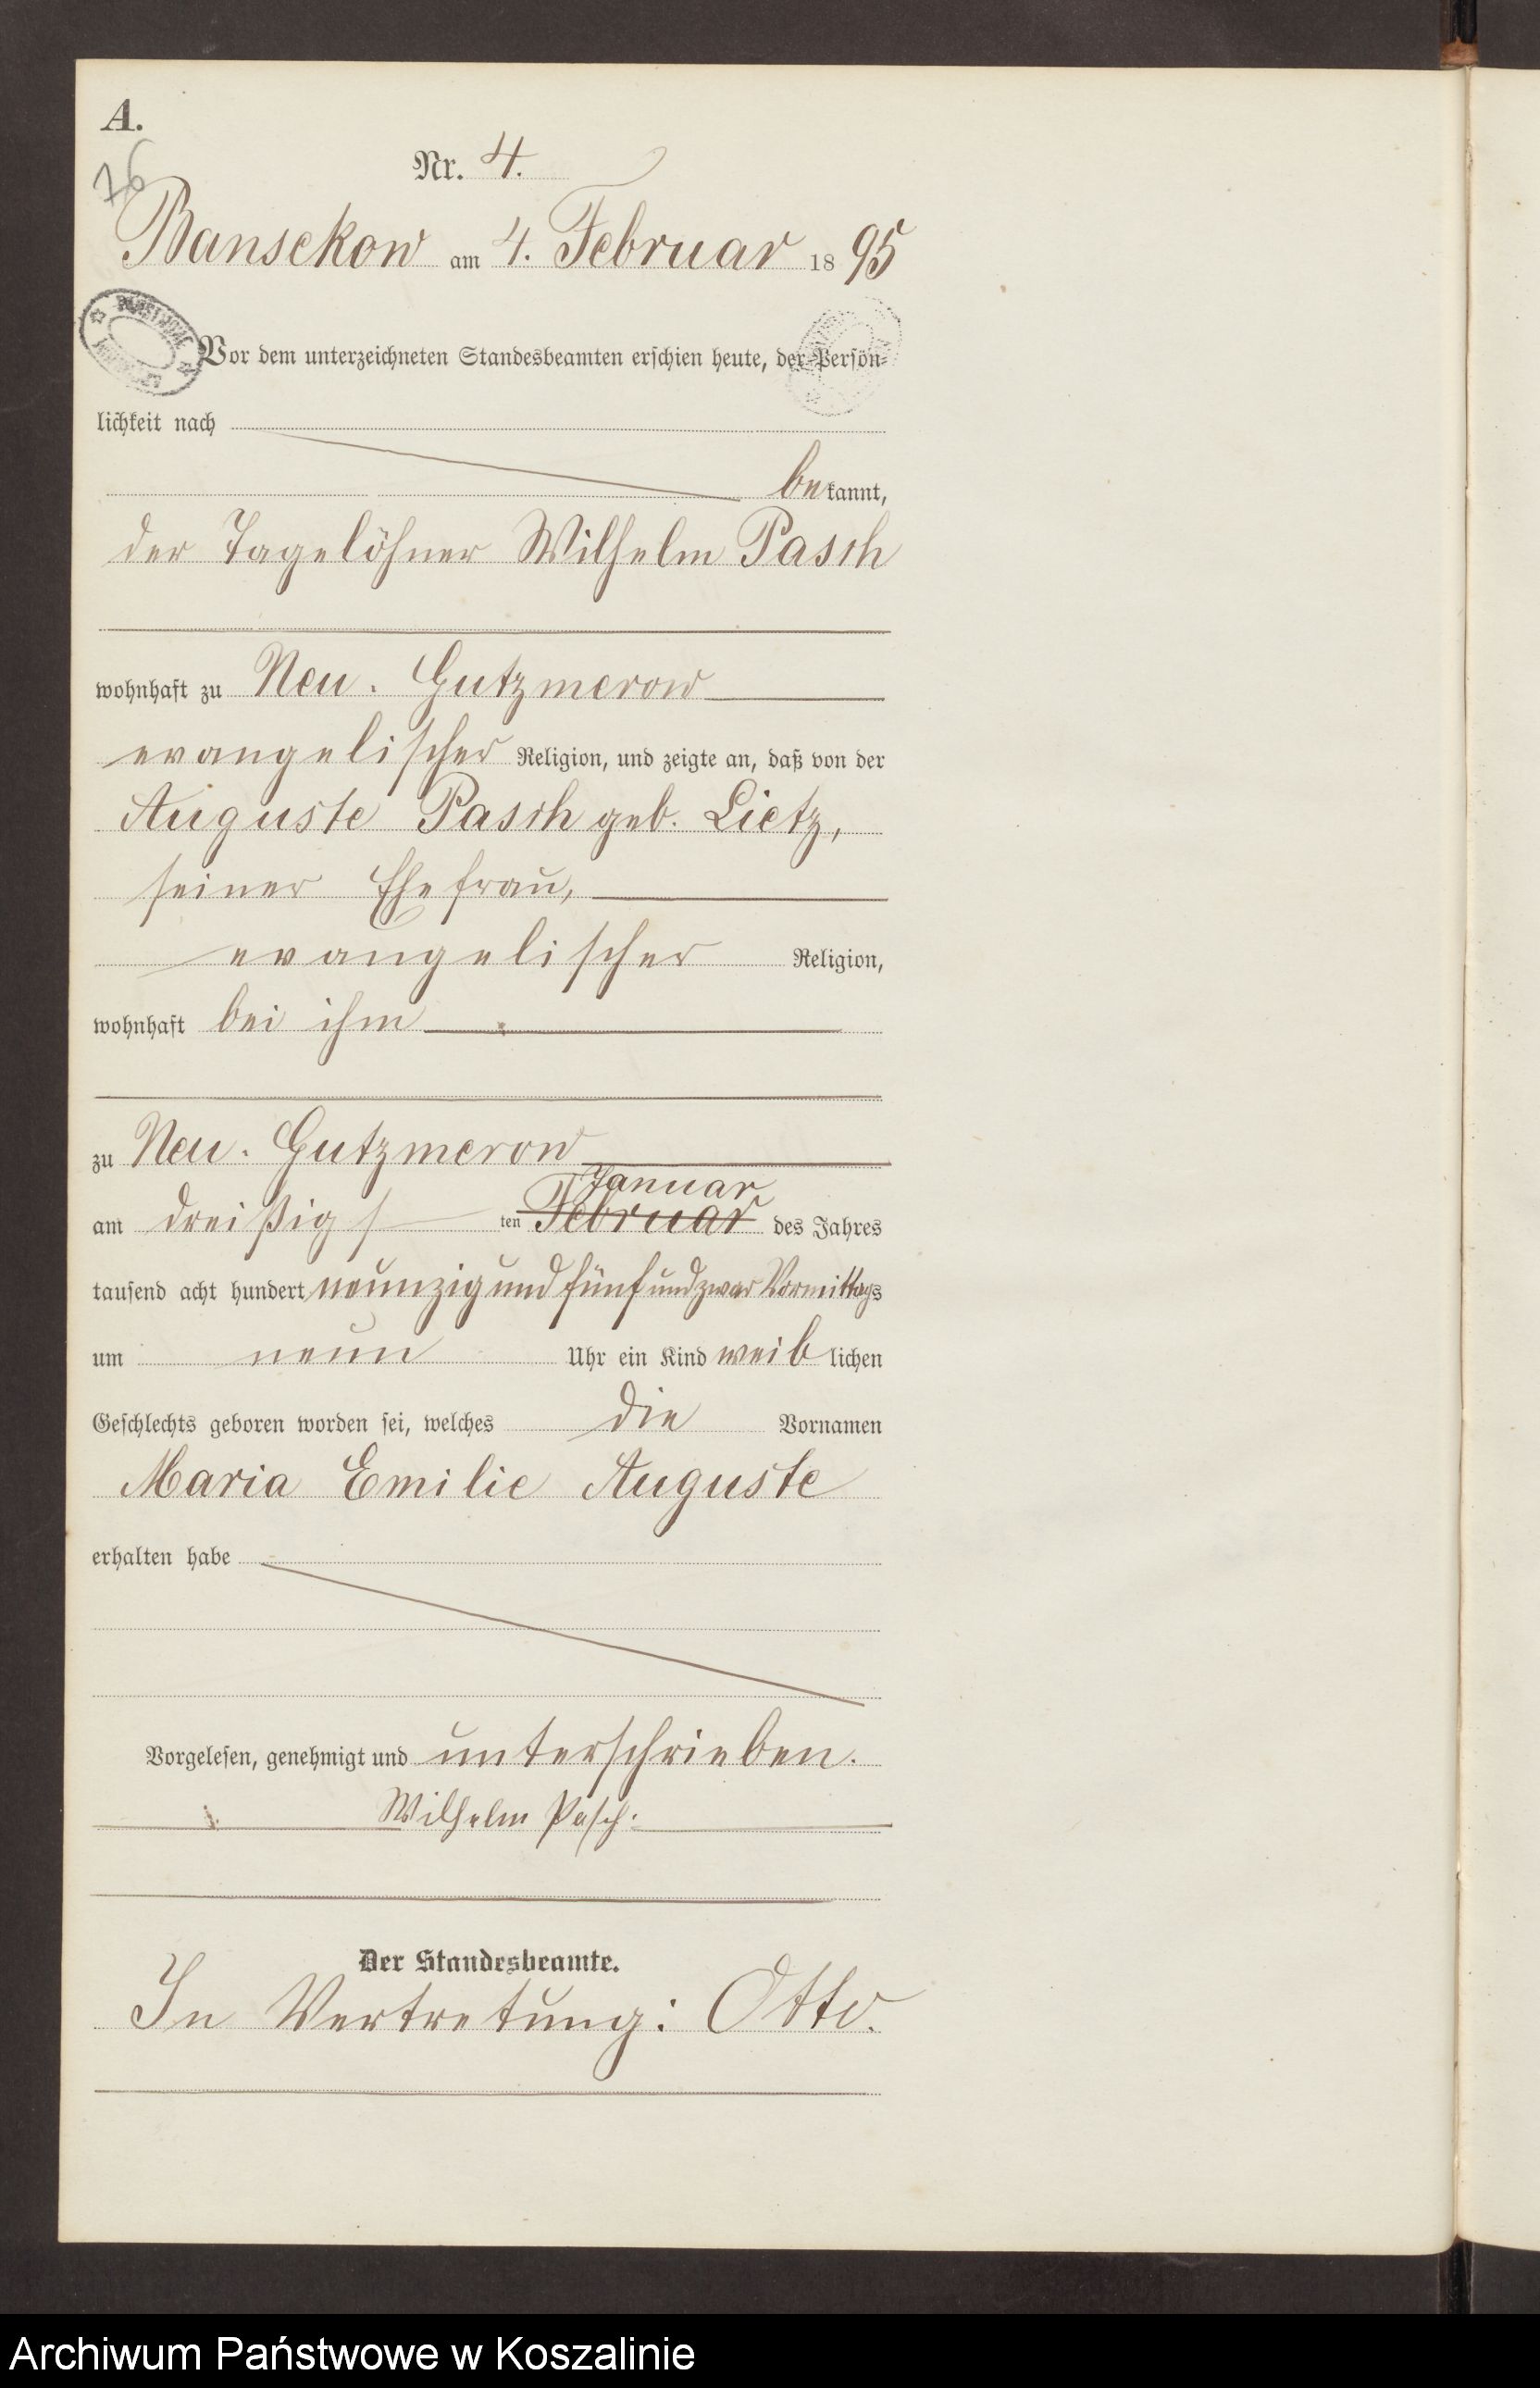 A.
76
Nr. 4.
Bansekow am 4. Februar 1895
Vor dem unterzeichneten Standesbeamten erschien heute, der Persön-
lichkeit nach
bekannt,
der Tagelöhner Wilhelm Pasch
wohnhaft zu Neu. Gutzmerow
evangelischer Religion, und zeigte an, daß von der
Auguste Pasch geb. Lietz,
seiner Ehefrau,
evangelischer Religion,
wohnhaft bei ihm
zu Neu. Gutzmerow
Januar
am dreißigsten Februar des Jahres
tausend acht hundert neunzig und fünf und zwar Vormittags
um neun Uhr ein Kind weiblichen
Geschlechts geboren worden sei, welches die Vornamen
Maria Emilie Auguste
erhalten habe
Vorgelesen, genehmigt und unterschrieben.
Wilhelm Pasch.
Der Standesbeamte.
In Vertretung: Otto.
Archiwum Państwowe w Koszalinie